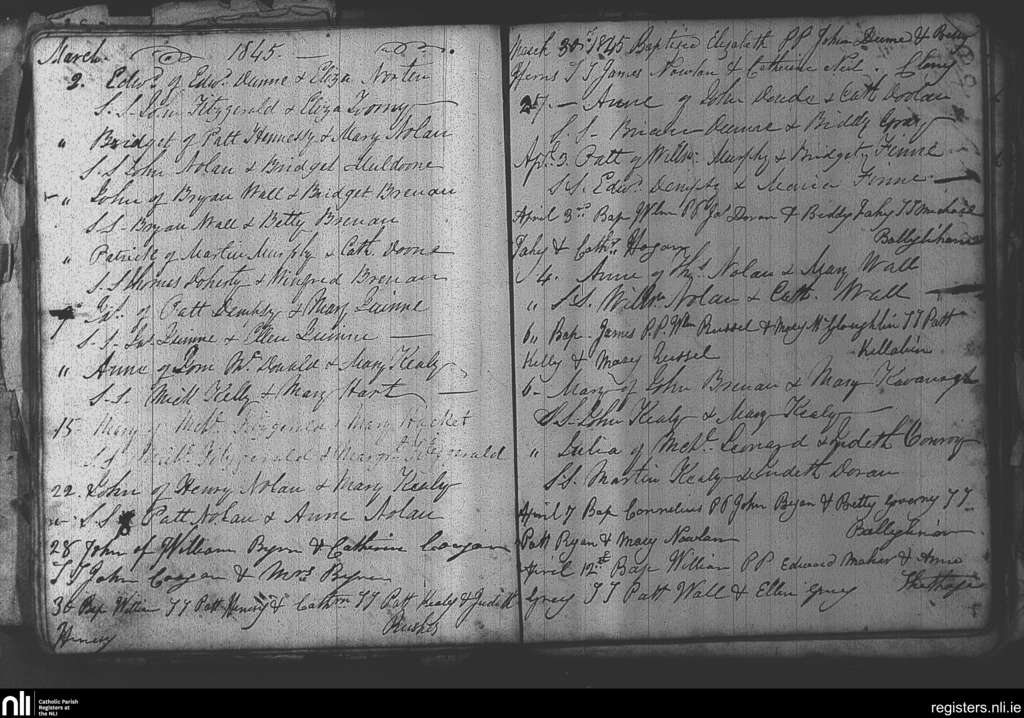 March 1845
2. Edwd. of Edwd. Dunne & Eliza Norten
S.S. John Fitzgerald & Eliza Toomy
" Bridget of Patt Hennessy & Mary Nolan
S.S John Nolan & Bridget Muldoone
" John of Bryan Wall & Bridget Brenan
S.S- Bryan Wall & Betty Brenan
" Patrick of Martin Murphy & Cath. Doone
S.S Thomas Doherty & Winifred Brenan
of Patt Dempsy & Mary Quinne
S.S. Jas. Quinne & Ellen Quinne
" Anne of Tom McDonald & Mary Kealy
S.S. Mick Kelly & Mary Hart
15 Mary of Michl. Fitzgerald & Mary Hacket
S.S. Michl. Fitzgerald & Margt. Fitzgerald
22. John of Henry Nolan & Mary Kealy
S.S Patt Nolan & Anne Nolan
28 John of William Byrn & Catherine Coogan
TT John Coogan & Mrs Byrn
30 Bap William PP Patt Henesy & Cathrn TT Patt Kealy & Judith
Henesy Rushes
March 30th 1845 Baptised Elizabeth PP John Dunne & Betsy
TT James Nowlan & Catherine Neil. Clony
27. - Anne of John Doude & Cath Doolan
S.S- Brian Dunne & Biddy Gray
Apl. 3 Patt of Willm. Murphy & Bridget Finne
S.S. Edwd. Dempsy & Maria Finne
April 3rd Bap Wlm PP Jas Doran & Biddy Fahy TT Michael
Fahy & Cathn. Hogan
4. Anne of Thos. Nolan & Mary Wall
" S.S. Willm Nolan & Cath. Wall
6" Bap. James P.P. Wlm Russel & Mary McGloughlin TT Patt
Kelly & Mary Russel Killabin
6- Mary of John Brenan & Mary Kavanagh
S.S- John Kealy & Mary Kealy
" Julia of Michl. Leonard & Judeth Conroy
S.S. Martin Kealy & Judeth Doran
April 7 Bap Cornelius PP John Ryan & Betty TT
Patt Ryan & Mary Nowlan
April 12th Bap William PP Edward Maher & Anne
Gray TT Patt Wall & Ellen Gray
nli
Catholic Parish
Registers at
the NLI
registers.nli.ie